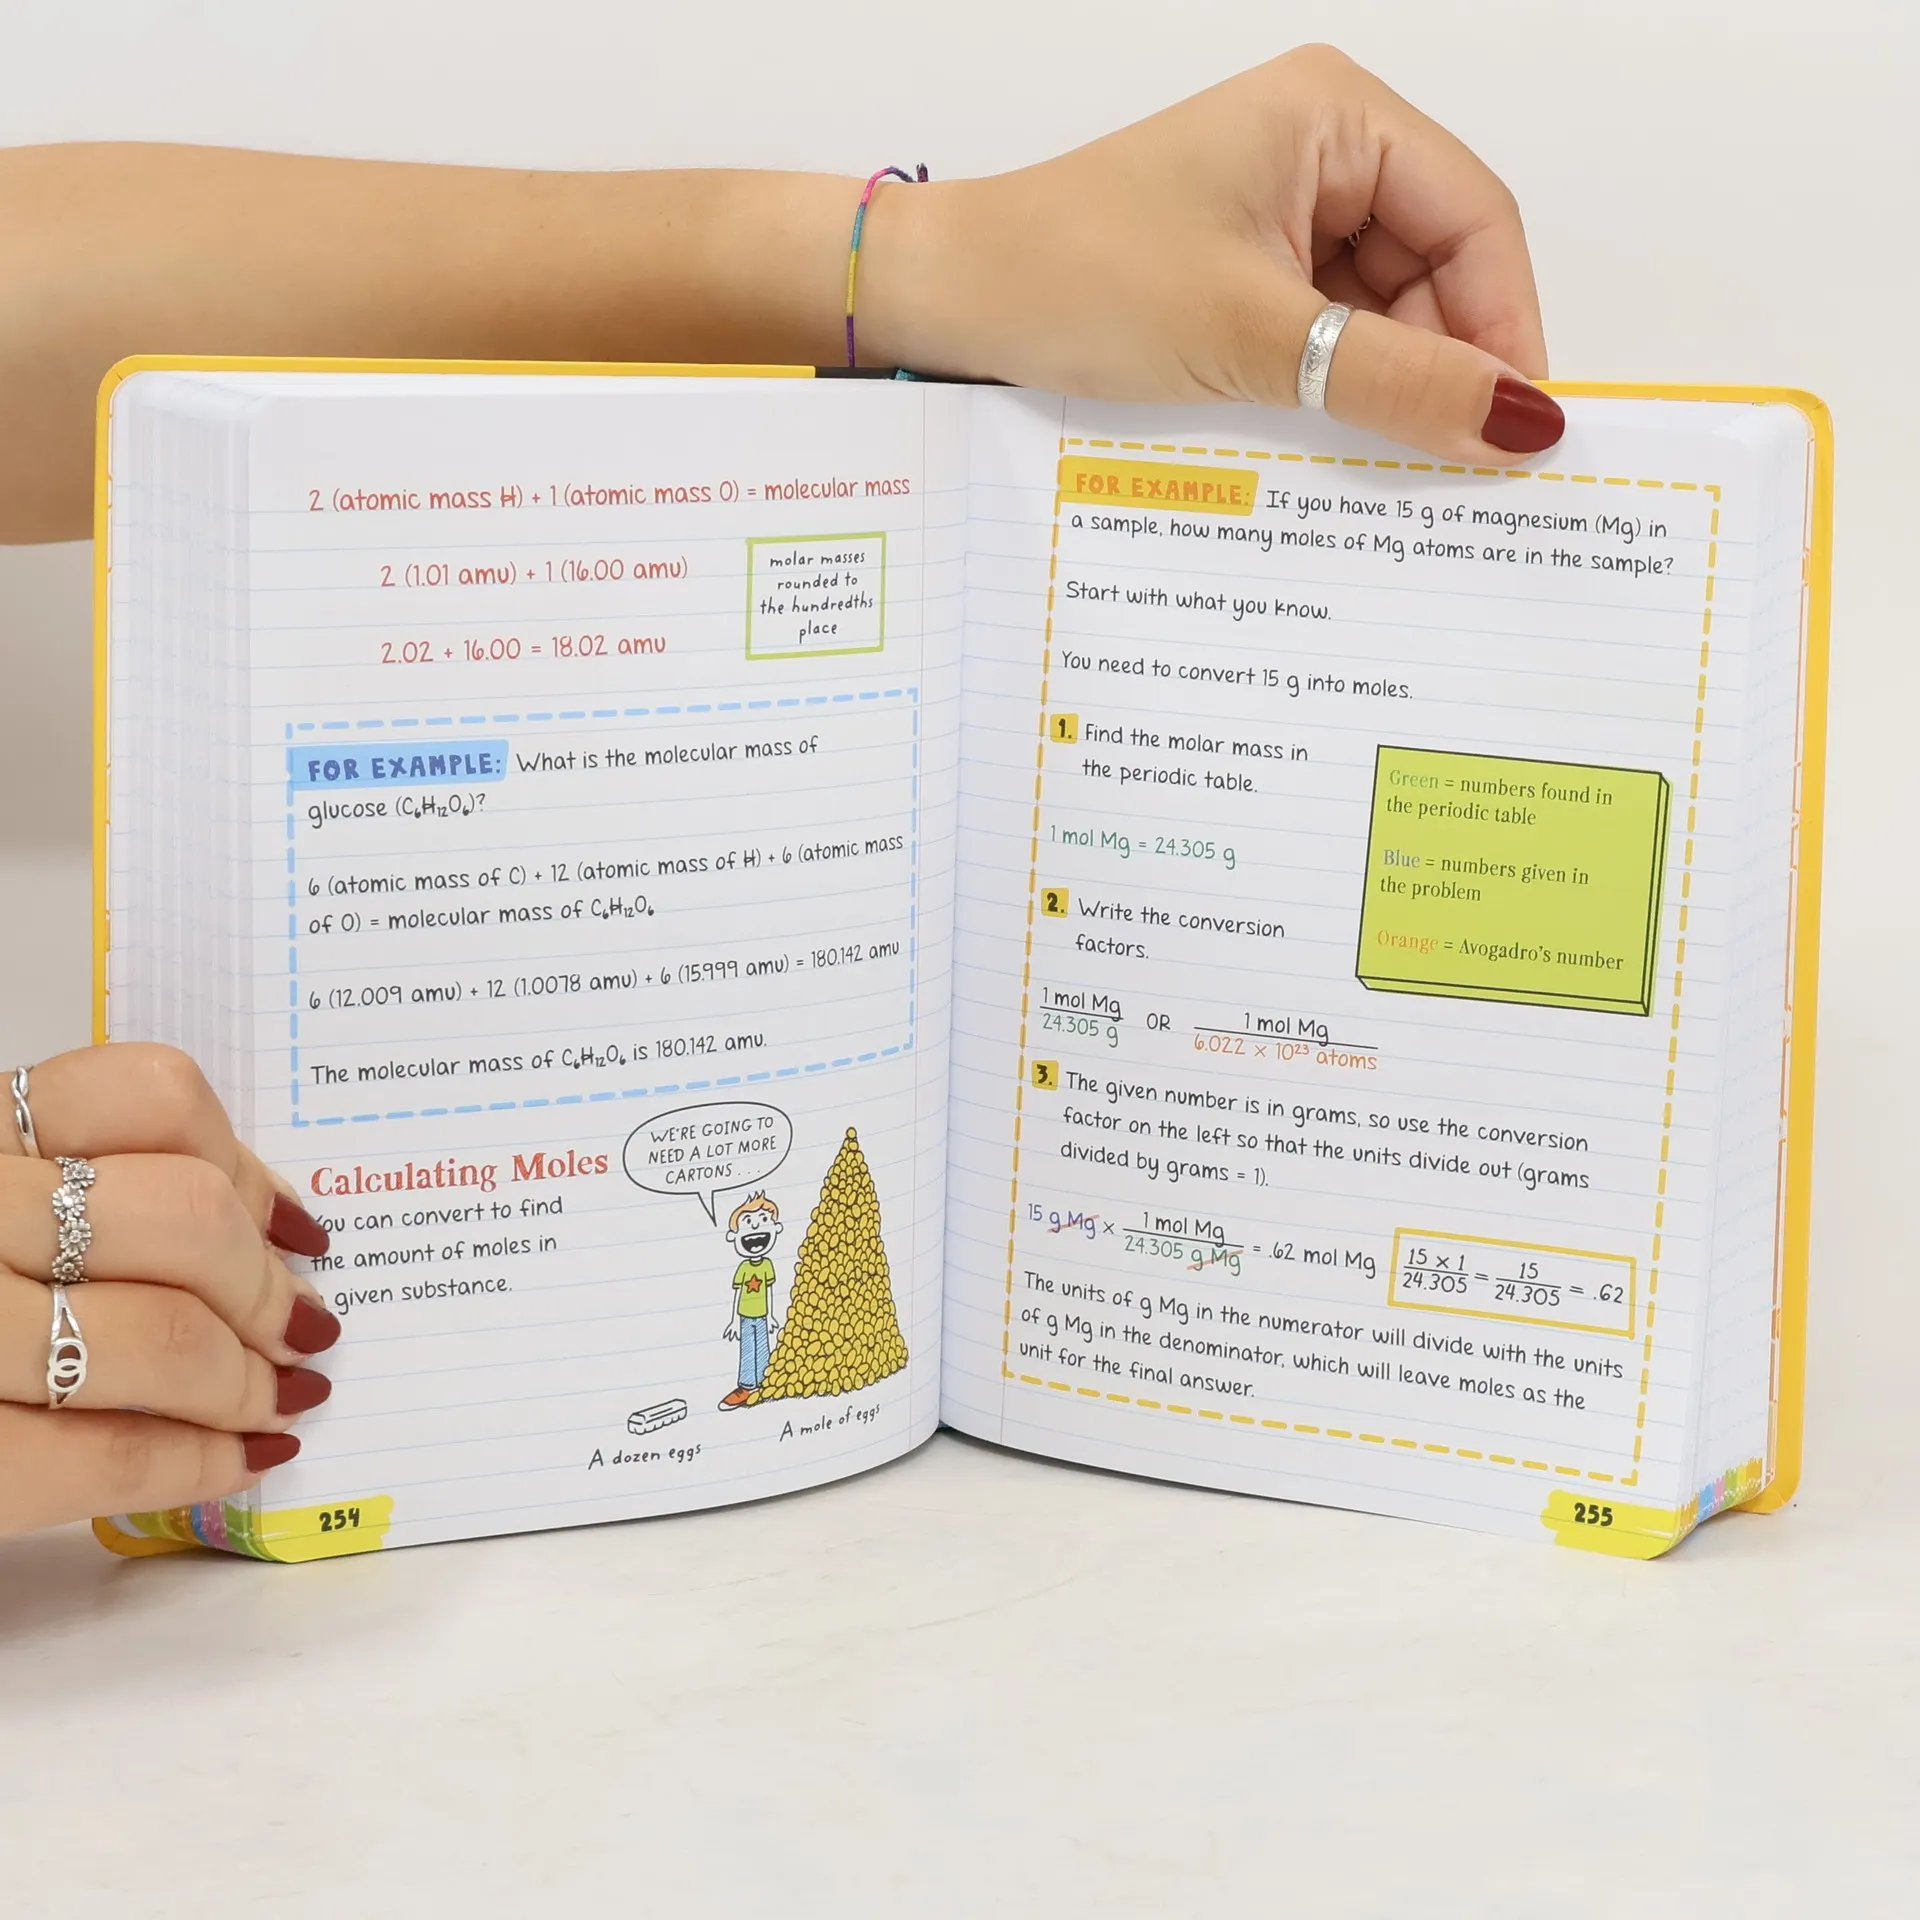 2 (atomic mass H) + 1 (atomic mass O) = molecular mass
2 (1.01 amu) + 1 (16.00 amu)
2.02 + 16.00 = 18.02 amu
molar masses
rounded to
the hundredths
place
FOR EXAMPLE: What is the molecular mass of
glucose (C₆H₁₂O₆)?
6 (atomic mass of C) + 12 (atomic mass of H) + 6 (atomic mass
of O) = molecular mass of C₆H₁₂O₆
6 (12.009 amu) + 12 (1.0078 amu) + 6 (15.999 amu) = 180.142 amu
The molecular mass of C₆H₁₂O₆ is 180.142 amu.
Calculating Moles
You can convert to find
the amount of moles in
given substance.
WE'RE GOING TO
NEED A LOT MORE
CARTONS . . .
A dozen eggs
A mole of eggs
254
FOR EXAMPLE: If you have 15 g of magnesium (Mg) in
a sample, how many moles of Mg atoms are in the sample?
Start with what you know.
You need to convert 15 g into moles.
1. Find the molar mass in
the periodic table.
1 mol Mg = 24.305 g
Green = numbers found in
the periodic table
Blue = numbers given in
the problem
Orange = Avogadro's number
2. Write the conversion
factors.
1 mol Mg
24.305 g
OR
1 mol Mg
6.022 × 10²³ atoms
3. The given number is in grams, so use the conversion
factor on the left so that the units divide out (grams
divided by grams = 1).
15 g Mg × 1 mol Mg / 24.305 g Mg = .62 mol Mg
15 × 1 / 24.305 = 15 / 24.305 = .62
The units of g Mg in the numerator will divide with the units
of g Mg in the denominator, which will leave moles as the
unit for the final answer.
255